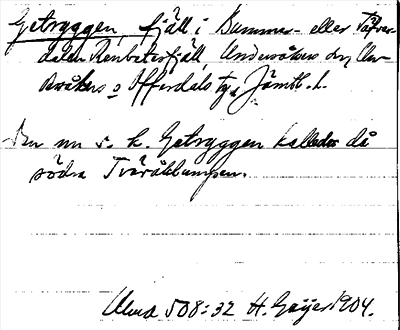 Getryggen, fjäll i Bummer- eller Täfver-
dalens Renbetesfjäll, Undersåkers o.
Åre Offerdals tg, Jämtl. l.
Den nu s. k. Getryggen kallades då
södra Tväråklumpen.
Ulma 508:32 H. Geijer 1904.